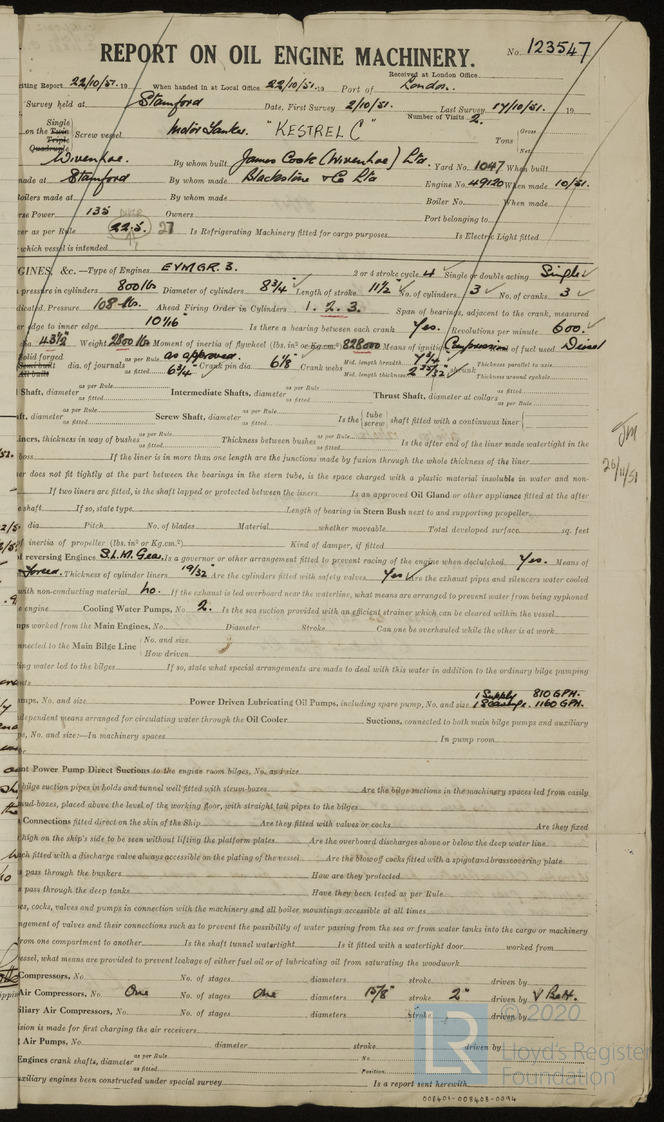 REPORT ON OIL ENGINE MACHINERY.
No. 123547
Received at London Office
riting Report 22/10/51. 19 When handed in at Local Office 22/10/51. 19 Port of London.
Survey held at Stamford Date, First Survey 2/10/51. Last Survey 17/10/51. 19
Number of Visits 2.
on the Single Twin Triple Quadruple Screw vessel Motor Tanker "KESTREL C" Tons Gross Net
Wivenhoe. By whom built James Cook (Wivenhoe) Ltd. Yard No. 1047 When built
made at Stamford By whom made Blackstone & Co Ltd Engine No. 49120 When made 10/51.
Boilers made at By whom made Boiler No. When made
rse Power 135 Owners Port belonging to
er as per Rule 22.5. 27 Is Refrigerating Machinery fitted for cargo purposes Is Electric Light fitted
which vessel is intended
GINES, &c.—Type of Engines EVMGR. 3. 2 or 4 stroke cycle 4 Single or double acting Single
pressure in cylinders 800 lb Diameter of cylinders 8¾" Length of stroke 11½" No. of cylinders 3 No. of cranks 3
dicated Pressure 108 lb. Ahead Firing Order in Cylinders 1. 2. 3. Span of bearings, adjacent to the crank, measured
er edge to inner edge 10 1/16" Is there a bearing between each crank Yes. Revolutions per minute 600.
dia 43½" Weight 2800 lb Moment of inertia of flywheel (lbs. in² or Kg.cm.²) 828000 Means of ignition Compression of fuel used Diesel
Solid forged Semi built All built dia. of journals as per Rule as approved. as fitted 6¾" Crank pin dia 6⅛" Crank webs Mid. length breadth 7¾" Mid. length thickness 2 25/32" shrunk Thickness parallel to axis Thickness around eyehole
Shaft, diameter as per Rule as fitted Intermediate Shafts, diameter as per Rule as fitted Thrust Shaft, diameter at collars as per Rule as fitted
ft, diameter as per Rule as fitted Screw Shaft, diameter as per Rule as fitted Is the { tube screw } shaft fitted with a continuous liner {
iners, thickness in way of bushes as per Rule as fitted Thickness between bushes as per Rule as fitted Is the after end of the liner made watertight in the
boss If the liner is in more than one length are the junctions made by fusion through the whole thickness of the liner
er does not fit tightly at the part between the bearings in the stern tube, is the space charged with a plastic material insoluble in water and non-
If two liners are fitted, is the shaft lapped or protected between the liners Is an approved Oil Gland or other appliance fitted at the after
shaft If so, state type Length of bearing in Stern Bush next to and supporting propeller
dia. Pitch No. of blades Material whether moveable Total developed surface sq. feet
f inertia of propeller (lbs. in² or Kg.cm.²) Kind of damper, if fitted
f reversing Engines S.L.M. Gear. Is a governor or other arrangement fitted to prevent racing of the engine when declutched Yes. Means of
Forced. Thickness of cylinder liners 19/32" Are the cylinders fitted with safety valves Yes Are the exhaust pipes and silencers water cooled
with non-conducting material No. If the exhaust is led overboard near the waterline, what means are arranged to prevent water from being syphoned
e engine Cooling Water Pumps, No. 2. Is the sea suction provided with an efficient strainer which can be cleared within the vessel
ps worked from the Main Engines, No. Diameter Stroke Can one be overhauled while the other is at work
nnected to the Main Bilge Line { No. and size How driven
ing water led to the bilges If so, state what special arrangements are made to deal with this water in addition to the ordinary bilge pumping
nts
mps, No. and size Power Driven Lubricating Oil Pumps, including spare pump, No. and size 1 Supply 810 GPH. 1 Scavenge. 1160 GPH.
dependent means arranged for circulating water through the Oil Cooler Suctions, connected to both main bilge pumps and auxiliary
ps, No. and size:—In machinery spaces In pump room
nt Power Pump Direct Suctions to the engine room bilges, No. and size
bilge suction pipes in holds and tunnel well fitted with strum-boxes Are the bilge suctions in the machinery spaces led from easily
mud-boxes, placed above the level of the working floor, with straight tail pipes to the bilges
Connections fitted direct on the skin of the Ship Are they fitted with valves or cocks Are they fixed
high on the ship's side to be seen without lifting the platform plates Are the overboard discharges above or below the deep water line
ch fitted with a discharge valve always accessible on the plating of the vessel Are the blow off cocks fitted with a spigot and brass covering plate
s pass through the bunkers How are they protected
s pass through the deep tanks Have they been tested as per Rule
es, cocks, valves and pumps in connection with the machinery and all boiler mountings accessible at all times
ngement of valves and their connections such as to prevent the possibility of water passing from the sea or from water tanks into the cargo or machinery
from one compartment to another Is the shaft tunnel watertight Is it fitted with a watertight door worked from
vessel, what means are provided to prevent leakage of either fuel oil or lubricating oil from saturating the woodwork
Compressors, No. No. of stages diameters stroke driven by
Air Compressors, No. One No. of stages One diameters stroke 2" driven by V Belt.
iliary Air Compressors, No. No. of stages diameters stroke driven by
ision is made for first charging the air receivers
Air Pumps, No. diameter stroke driven by
Engines crank shafts, diameter as per Rule as fitted No. Position
uxiliary engines been constructed under special survey Is a report sent herewith
JM
26/11/51
© 2020
Lloyd's Register
Foundation
LR
008401-008408-0094